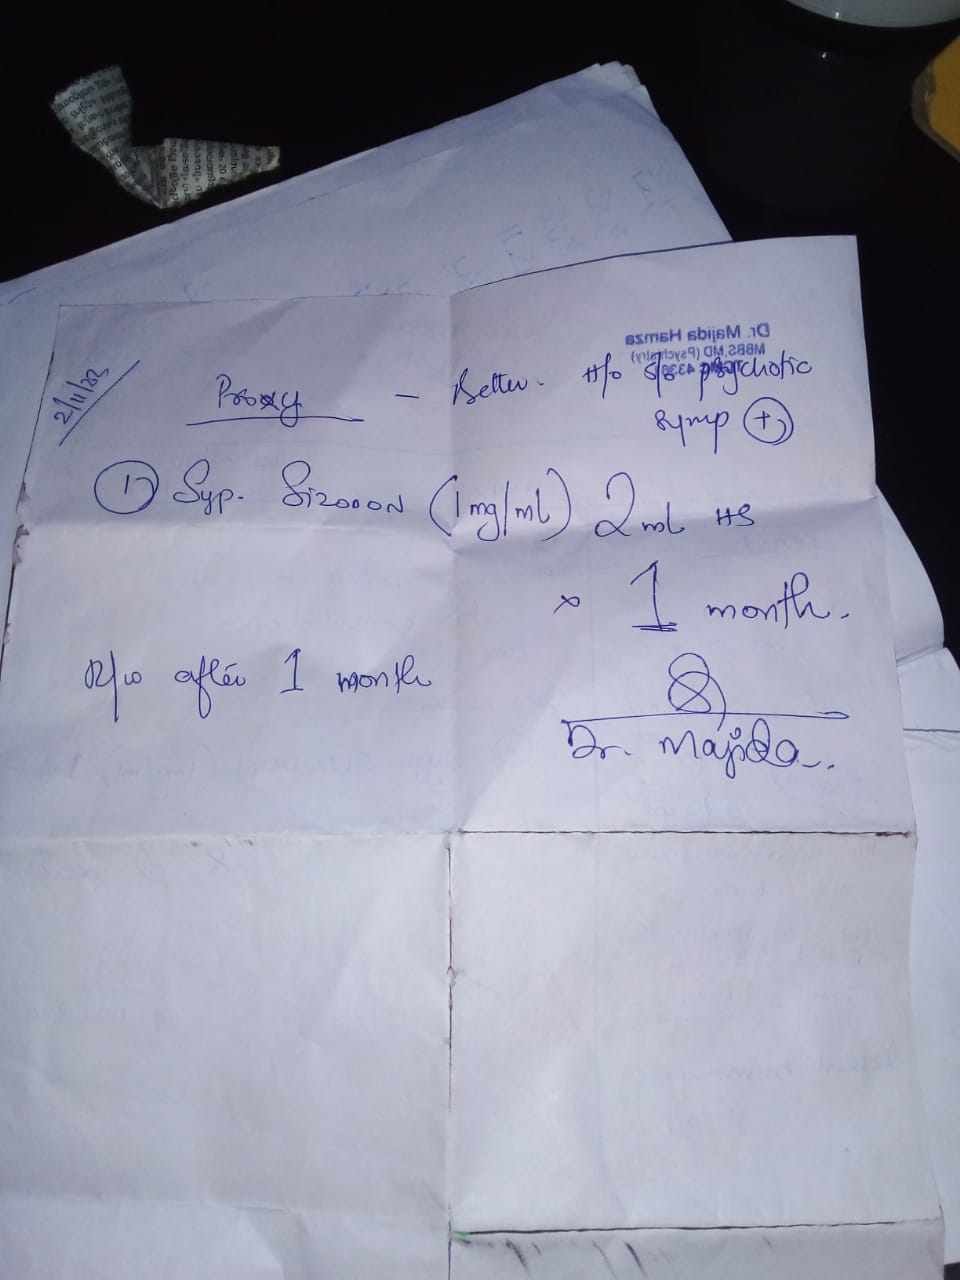 Dr. Majida Hamza
MBBS, MD (Psychiatry)
2/11/22
Proxy - Better. H/o s/o psychotic
symp +
1) Syp. Sizodon (1mg/ml) 2ml HS
x 1 month.
R/w after 1 month
Dr. Majida